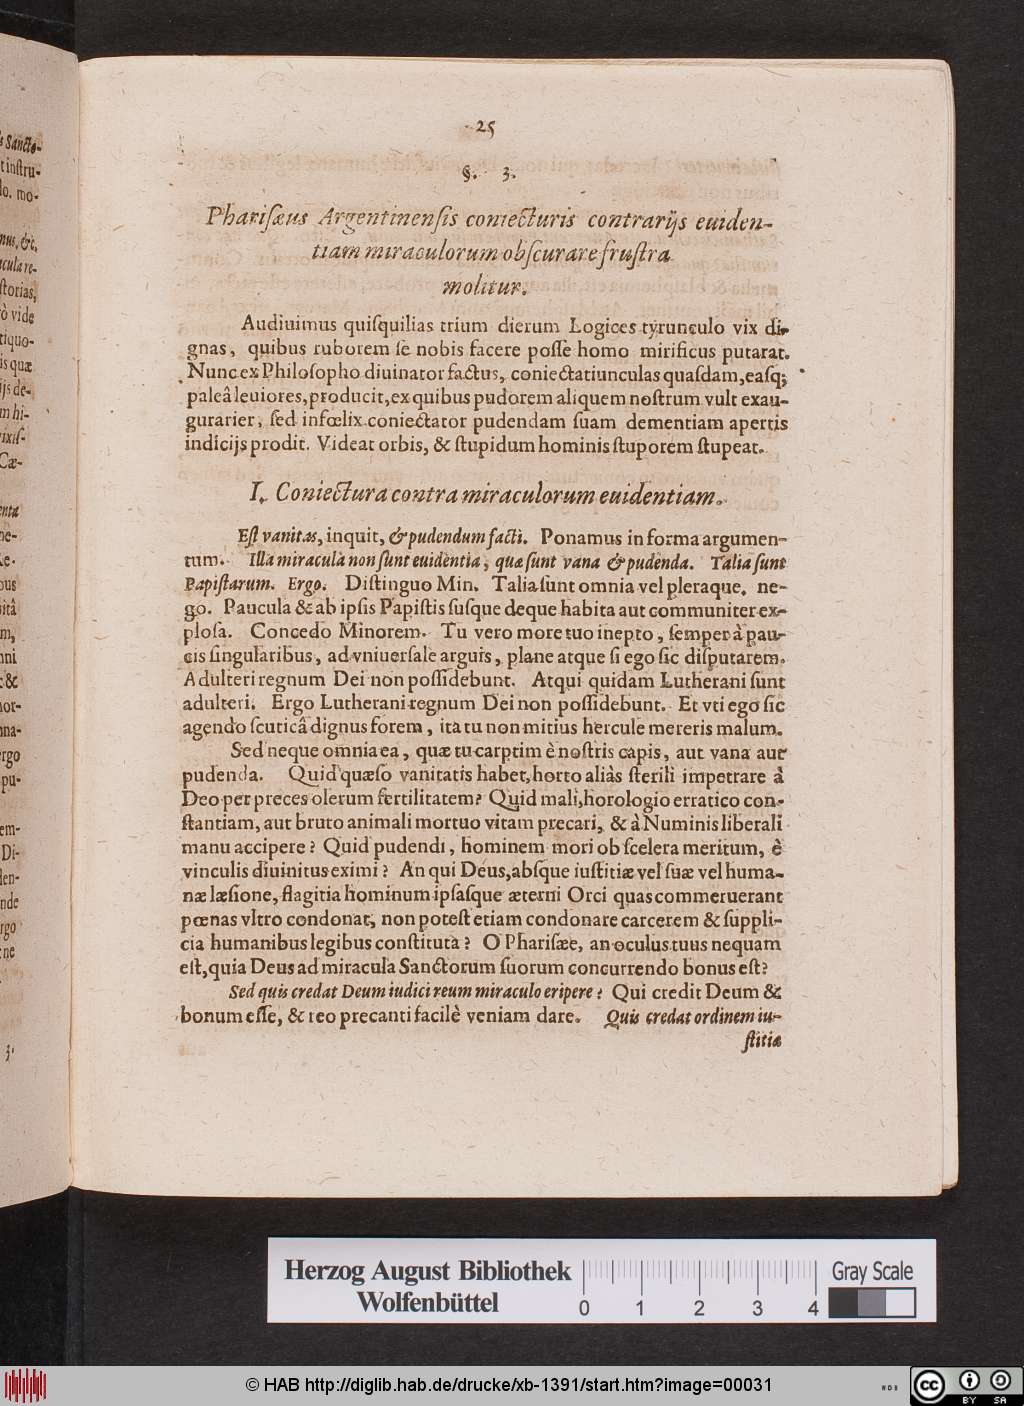 25
§. 3.
Phariſæus Argentinenſis coniecturis contrarijs euiden-
tiam miraculorum obſcurare fruſtra
molitur.
Audiuimus quiſquilias trium dierum Logices tyrunculo vix di-
gnas, quibus ruborem ſe nobis facere poſſe homo mirificus putarat.
Nunc ex Philoſopho diuinator factus, coniectatiunculas quaſdam, eaſq;
paleâ leuiores, producit, ex quibus pudorem aliquem noſtrum vult exau-
gurarier, ſed infœlix coniectator pudendam ſuam dementiam apertis
indicijs prodit. Videat orbis, & ſtupidum hominis ſtuporem ſtupeat.
I. Coniectura contra miraculorum euidentiam.
Eſt vanitas, inquit, & pudendum facti. Ponamus in forma argumen-
tum. Illa miracula non ſunt euidentia, quæ ſunt vana & pudenda. Talia ſunt
Papiſtarum. Ergo. Diſtinguo Min. Talia ſunt omnia vel pleraque, ne-
go. Paucula & ab ipſis Papiſtis ſuſque deque habita aut communiter ex-
ploſa. Concedo Minorem. Tu vero more tuo inepto, ſemper à pau-
cis ſingularibus, ad vniuerſale arguis, plane atque ſi ego ſic diſputarem.
Adulteri regnum Dei non poſſidebunt. Atqui quidam Lutherani ſunt
adulteri. Ergo Lutherani regnum Dei non poſſidebunt. Et vti ego ſic
agendo ſcuticâ dignus forem, ita tu non mitius hercule mereris malum.
Sed neque omnia ea, quæ tu carptim è noſtris capis, aut vana aut
pudenda. Quid quæſo vanitatis habet, horto aliàs ſterili impetrare à
Deo per preces olerum fertilitatem? Quid mali, horologio erratico con-
ſtantiam, aut bruto animali mortuo vitam precari, & à Numinis liberali
manu accipere? Quid pudendi, hominem mori ob ſcelera meritum, è
vinculis diuinitus eximi? An qui Deus, abſque iuſtitiæ vel ſuæ vel huma-
næ læſione, flagitia hominum ipſaſque æterni Orci quas commeruerant
pœnas vltro condonat, non poteſt etiam condonare carcerem & ſuppli-
cia humanibus legibus conſtituta? O Phariſæe, an oculus tuus nequam
eſt, quia Deus ad miracula Sanctorum ſuorum concurrendo bonus eſt?
Sed quis credat Deum iudici reum miraculo eripere? Qui credit Deum &
bonum eſſe, & reo precanti facilè veniam dare. Quis credat ordinem iu-
ſtitiæ
Herzog August Bibliothek
Wolfenbüttel
0 1 2 3 4
Gray Scale
© HAB http://diglib.hab.de/drucke/xb-1391/start.htm?image=00031
cc BY SA